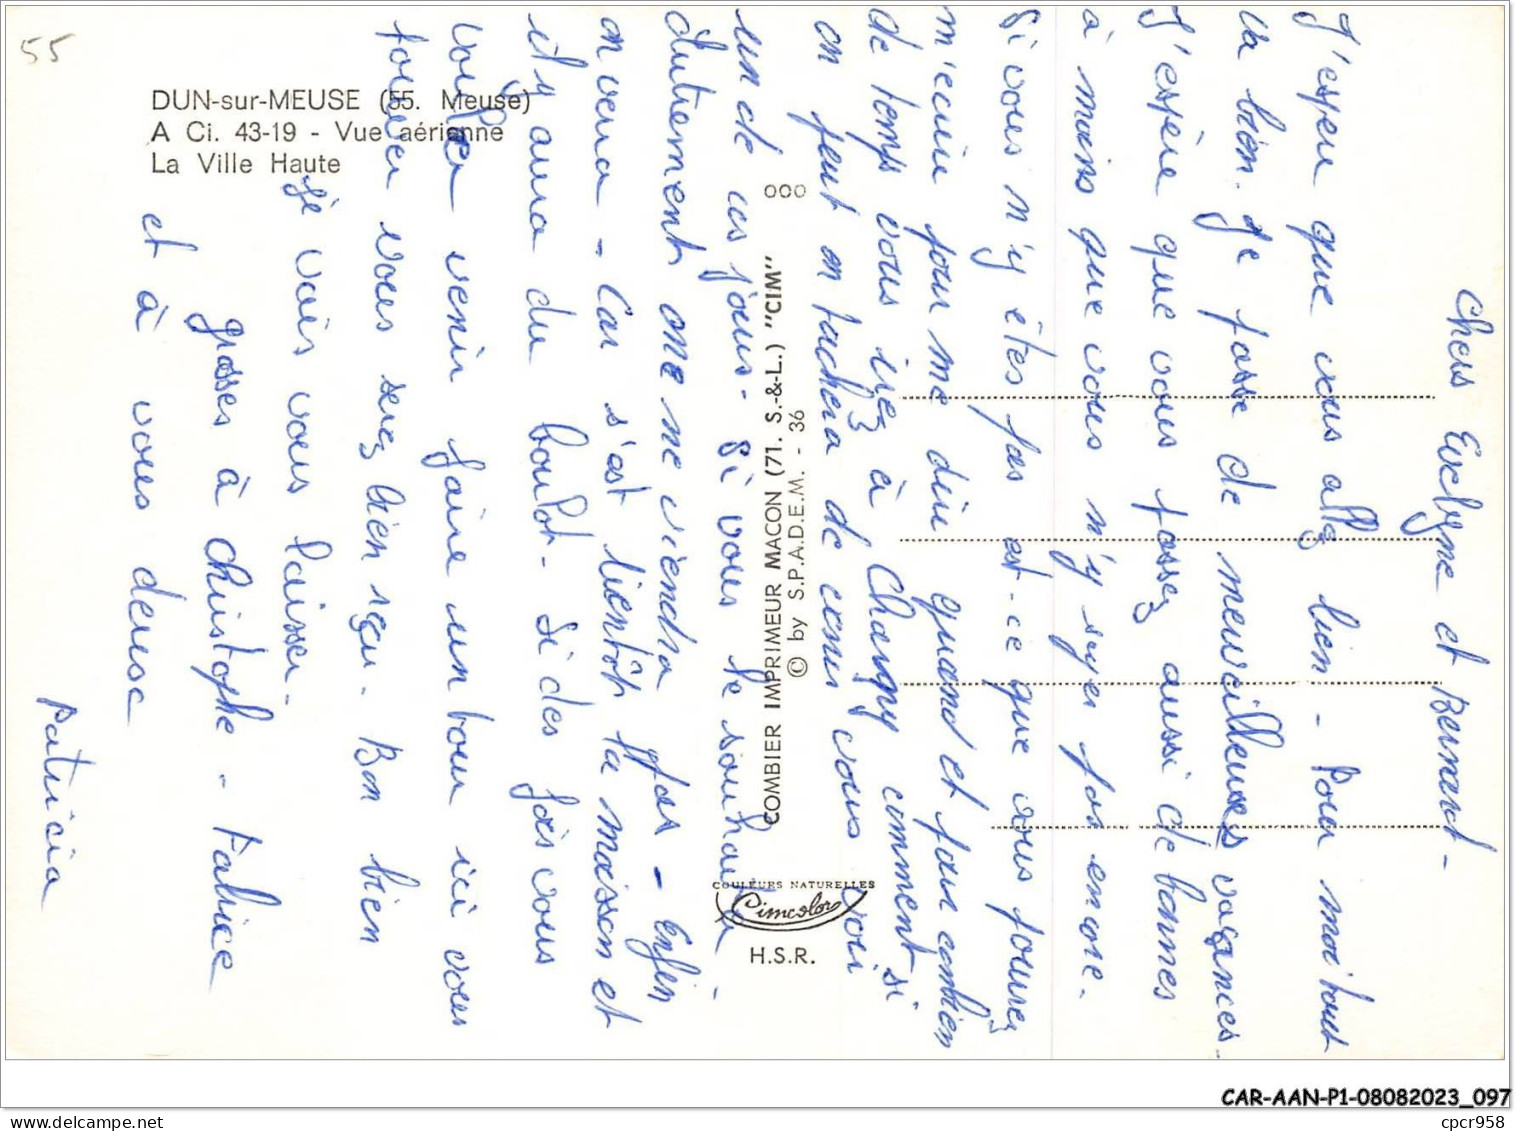 55
DUN-sur-MEUSE (55. Meuse)
A Ci. 43-19 - Vue aérienne
La Ville Haute
000
COMBIER IMPRIMEUR MACON (71. S.-&-L.) "CIM"
© by S.P.A.D.E.M. - 36
COULEURS NATURELLES
Cimcolor
H.S.R.
Chers Evelyne et Bernard -
J'espere que vous allez bien - Pour moi tout
va bien. Je passe de merveilleuses vacances.
J'espère que vous passez aussi de bonnes
à moins que vous n'y soyez pas encore.
Si vous n'y êtes pas est-ce que vous pourrez
m'ecrire pour me dire quand et pour combien
de temps vous irez à Changy comment si
on peut on tachera de venir vous voir
un de ces jours - Si vous le souhaitez
autrement one ne viendra pas - Enfin
on verra - Car s'est bientôt la moisson et
il y aura du boulot - Si des fois vous
voulez venir faire un tour ici vous
pouvez vous serez bien reçu. Bon bien
je vais vous laisser -
grosses à Christophe - Fabrice
et à vous deux
Patricia
CAR-AAN-P1-08082023_097
delcampe.net
cpcr958